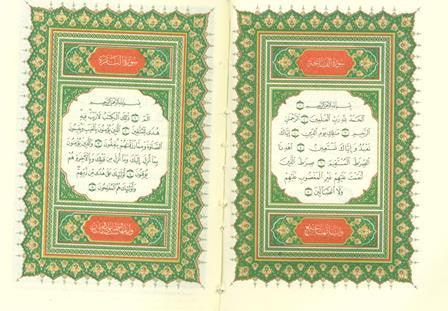 سورة الفاتحة
بسم الله الرحمن الرحيم
الحمد لله رب العلمين الرحمن
الرحيم ملك يوم الدين إياك
نعبد وإياك نستعين اهدنا
الصرط المستقيم صرط الذين
أنعمت عليهم غير المغضوب عليهم
ولا الضالين
وآياتها سبع
سورة البقرة
بسم الله الرحمن الرحيم
الم ذلك الكتب لا ريب فيه
هدى للمتقين الذين يؤمنون بالغيب ويقيمون
الصلوة ومما رزقنهم ينفقون والذين يؤمنون
بما أنزل إليك وما أنزل من قبلك وبالآخرة هم
يوقنون أولئك على هدى من ربهم
وأولئك هم المفلحون